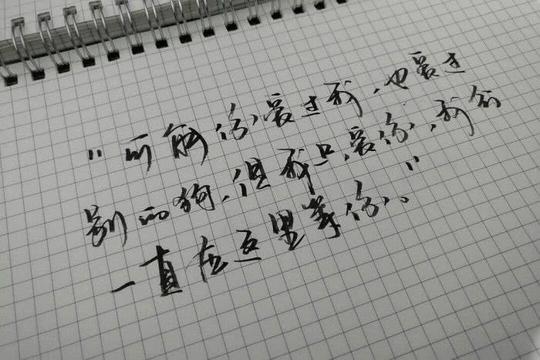 "可能你爱过我,也爱过
别的狗,但我只爱你,我会
一直在这里等你。"